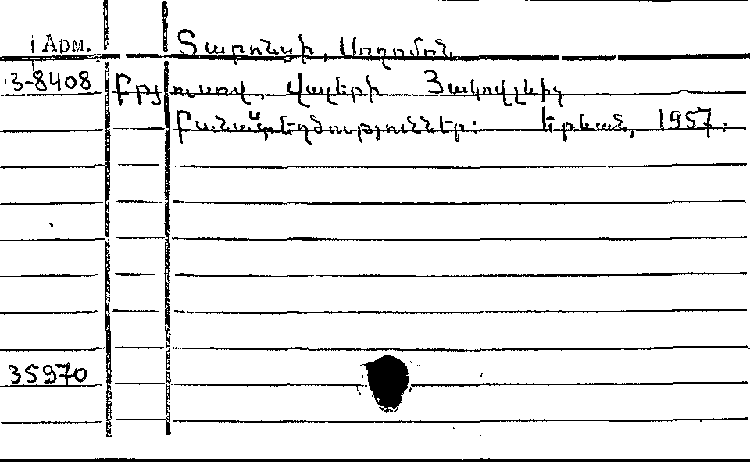 Арм. Տարոնցի, Սողոմոն
3-8408 Բրյուսով, Վալերի Յակովլևիչ
Բանաստեղծություններ: Երևան, 1957.
35970